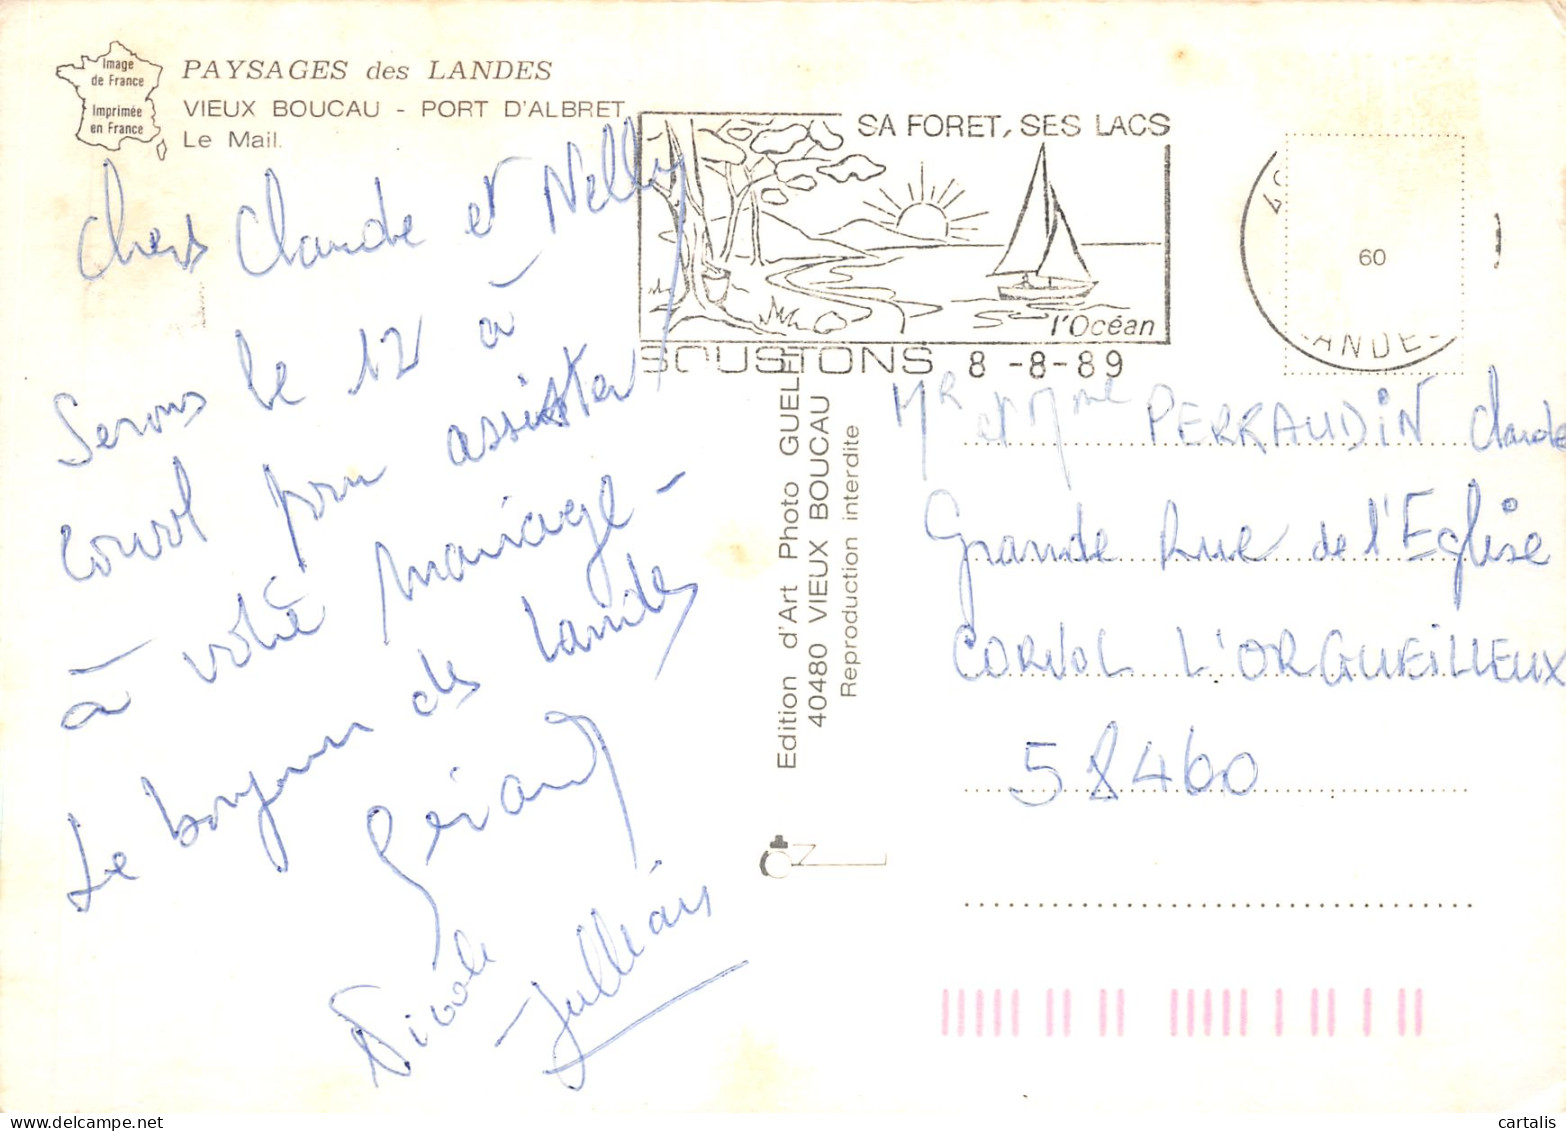 Image
de France
Imprimée
en France
PAYSAGES des LANDES
VIEUX BOUCAU - PORT D'ALBRET
Le Mail.
Chers Claude et Nelly
Serons le 12 à
Corvol pour assister
à votre mariage -
Le bonjour des Landes
Gérard
Nicole
Jullian
SA FORET, SES LACS
l'Océan
SOUSTONS 8 -8-89
60
LANDES
Edition d'Art Photo GUELE
40480 VIEUX BOUCAU
Reproduction interdite
Mr et Mme PERRAUDIN Claude
Grande Rue de l'Eglise
CORVOL L'ORGUEILLEUX
58460
cartalis